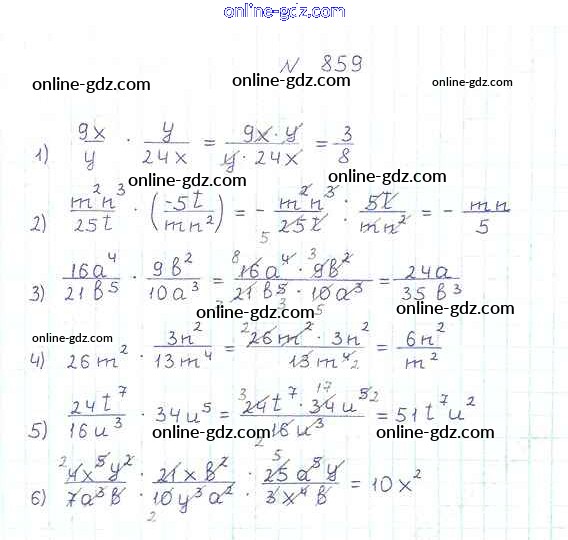 online-gdz.com
N 859
online-gdz.com online-gdz.com online-gdz.com
1) 9x/y · y/24x = 9x·y/y·24x = 3/8
online-gdz.com online-gdz.com
2) m²n³/25t · (-5t/mn²) = - m²n³/25t · 5t/mn² = - mn/5
5
online-gdz.com online-gdz.com
3) 16a⁴/21b⁵ · 9b²/10a³ = 16a⁴·9b²/21b⁵·10a³ = 24a/35b³
online-gdz.com online-gdz.com online-gdz.com
4) 26m² · 3n²/13m⁴ = 26m²·3n²/13m⁴ = 6n²/m²
5) 24t⁷/16u³ · 34u⁵ = 24t⁷·34u⁵/16u³ = 51t⁷u²
online-gdz.com online-gdz.com
6) 4x⁵y²/7a³b · 21xb²/10y³a² · 25a⁵y/3x⁴b = 10x²
online-gdz.com